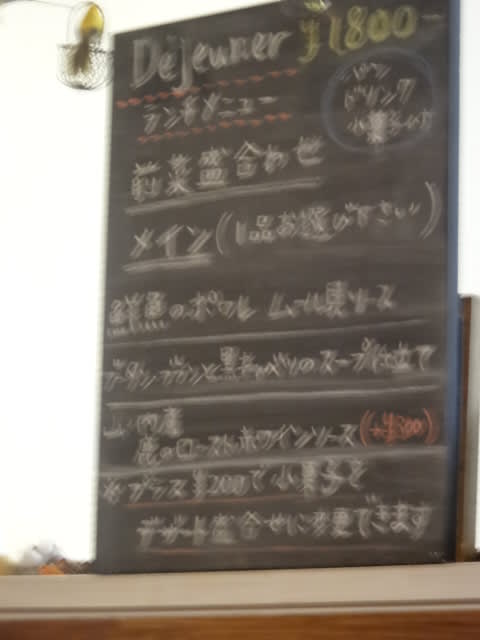 Déjeuner ¥1800
パン
ドリンク
小菓子付
ランチメニュー
前菜盛合わせ
メイン(1品お選び下さい)
鮮魚のポワレ ムール貝ソース
ブーダンブランと黒キャベツのスープ仕立て
産
鹿のロースト赤ワインソース(+¥300)
※プラス¥200で小菓子を
デザート盛合せに変更できます